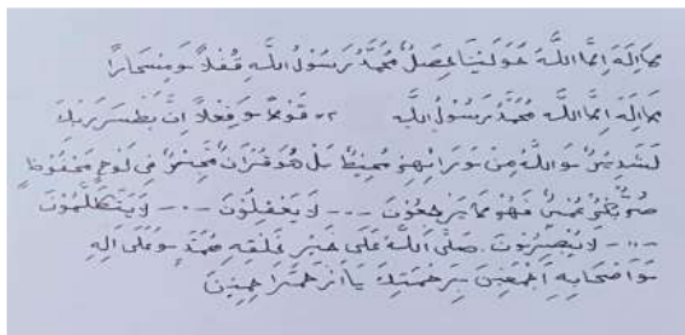 مَا اِلَهَ اِلَّا اللَّهَ حَوْلَنَا حِصَلٌ مُحَمَّدٌ رَسُوْلُ اللَّهِ قُفْلاً وَمِسْحَارًا
مَا اِلَهَ اِلَّا اللَّه مُحَمَّدٌ رَسُوْلُ اللَّهِ ٢× قَوْلاً وَفِعْلاً اِنَّ بَطْسَ رَبِّكَ
لَشَدِيْدٌ وَاللَّهُ مِنْ وَرَائِهِمْ مُحِيْطٌ بَلْ هُوَ قُرْاَنٌ مَّجِيْدٌ فِى لَوْحٍ مَحْفُوْظٍ
صُمٌّ بُكْمٌ عُمْيٌ فَهُمْ مَا يَرْجِعُوْنَ -.- لَا يَعْقِلُوْنَ -.- لَا يَتَكَلَّمُوْنَ
-.- لَا يُبْصِرُوْنَ. صَلَّى اللَّهُ عَلَى خَيْرِ خَلْقِهِ مُحَمَّدٍ وَعَلَى اَلِهِ
وَاَصْحَابِهِ اَجْمَعِيْنَ بِرَحْمَتِكَ يَا اَرْحَمَ رَاحِمِيْنَ